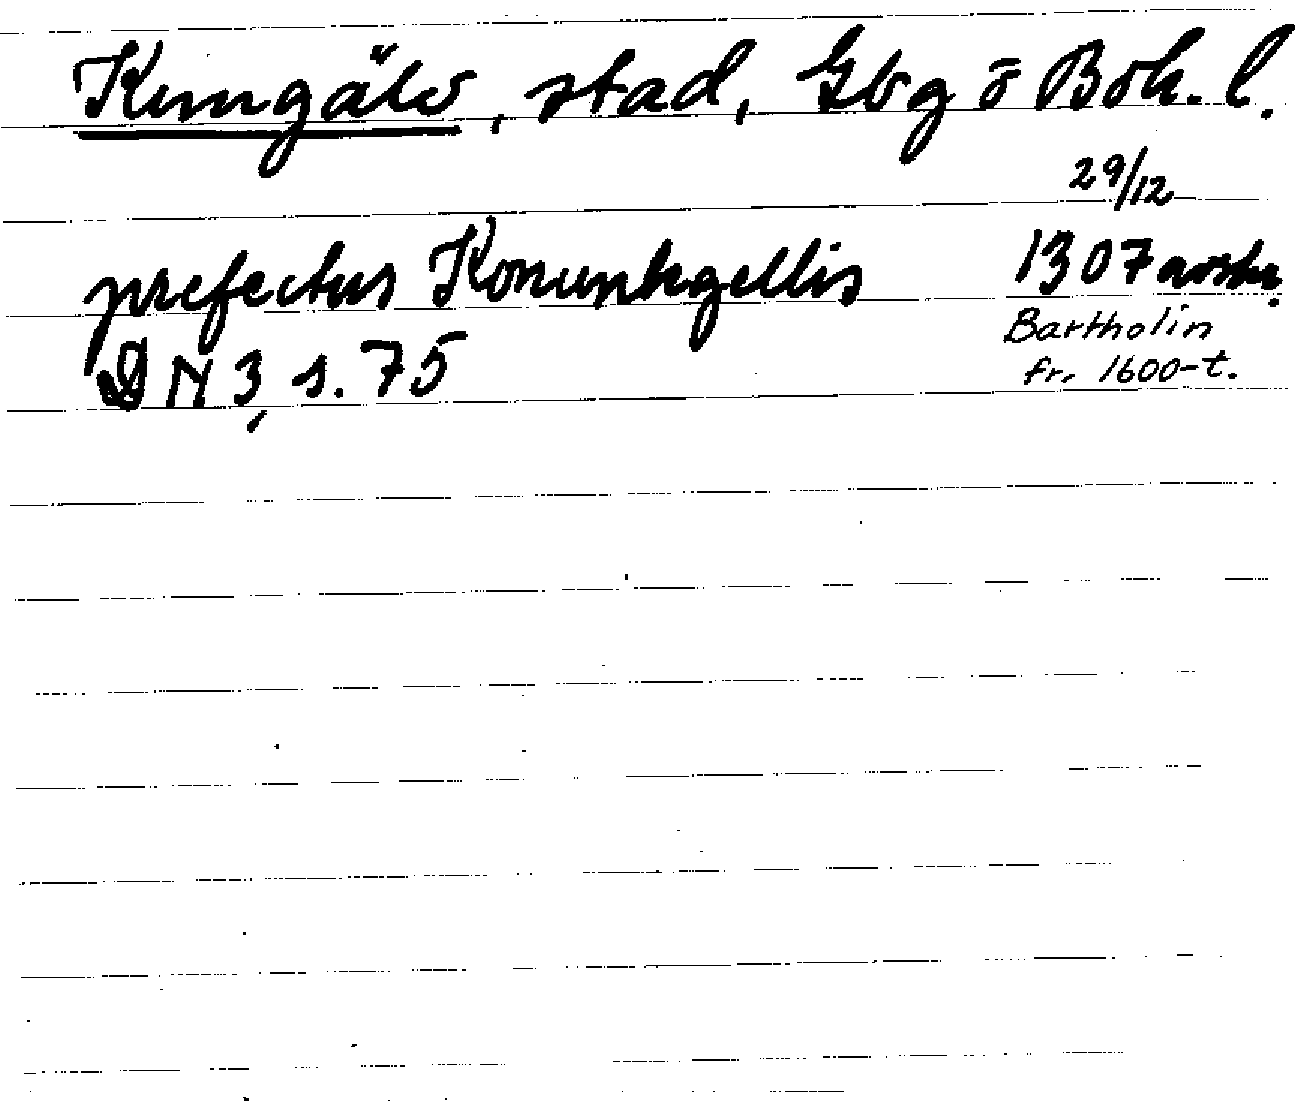 Kungälv, stad, Gbg o Boh. l.
29/12
prefectus Konunhgellis 1307 avskr.
DN 3, s. 75 Bartholin
fr. 1600-t.